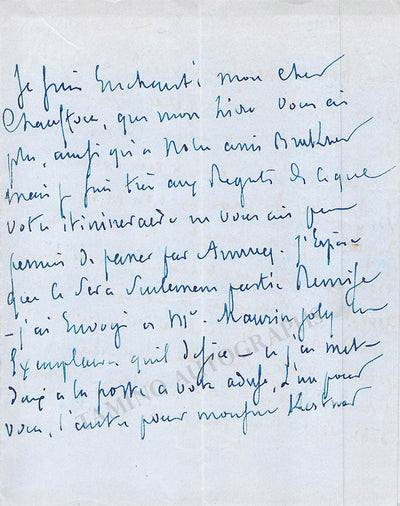 Je suis Enchanté mon cher
que mon livre vous ai
plu, ainsi qu'à notre ami Bruckner
mais je suis très aux Regrets de ce que
votre itinineraire ne vous ais pas
permis de passer par Annecy. J'Espère
que ce sera seulement partie Remise
- j'ai Envoyé a Mr. Maurin joly les
Exemplaires qu'il désire - et j'ai met-
à la poste a votre adresse, L'un pour
vous, l'autre pour monsieur
TAMINO AUTOGRAPHS